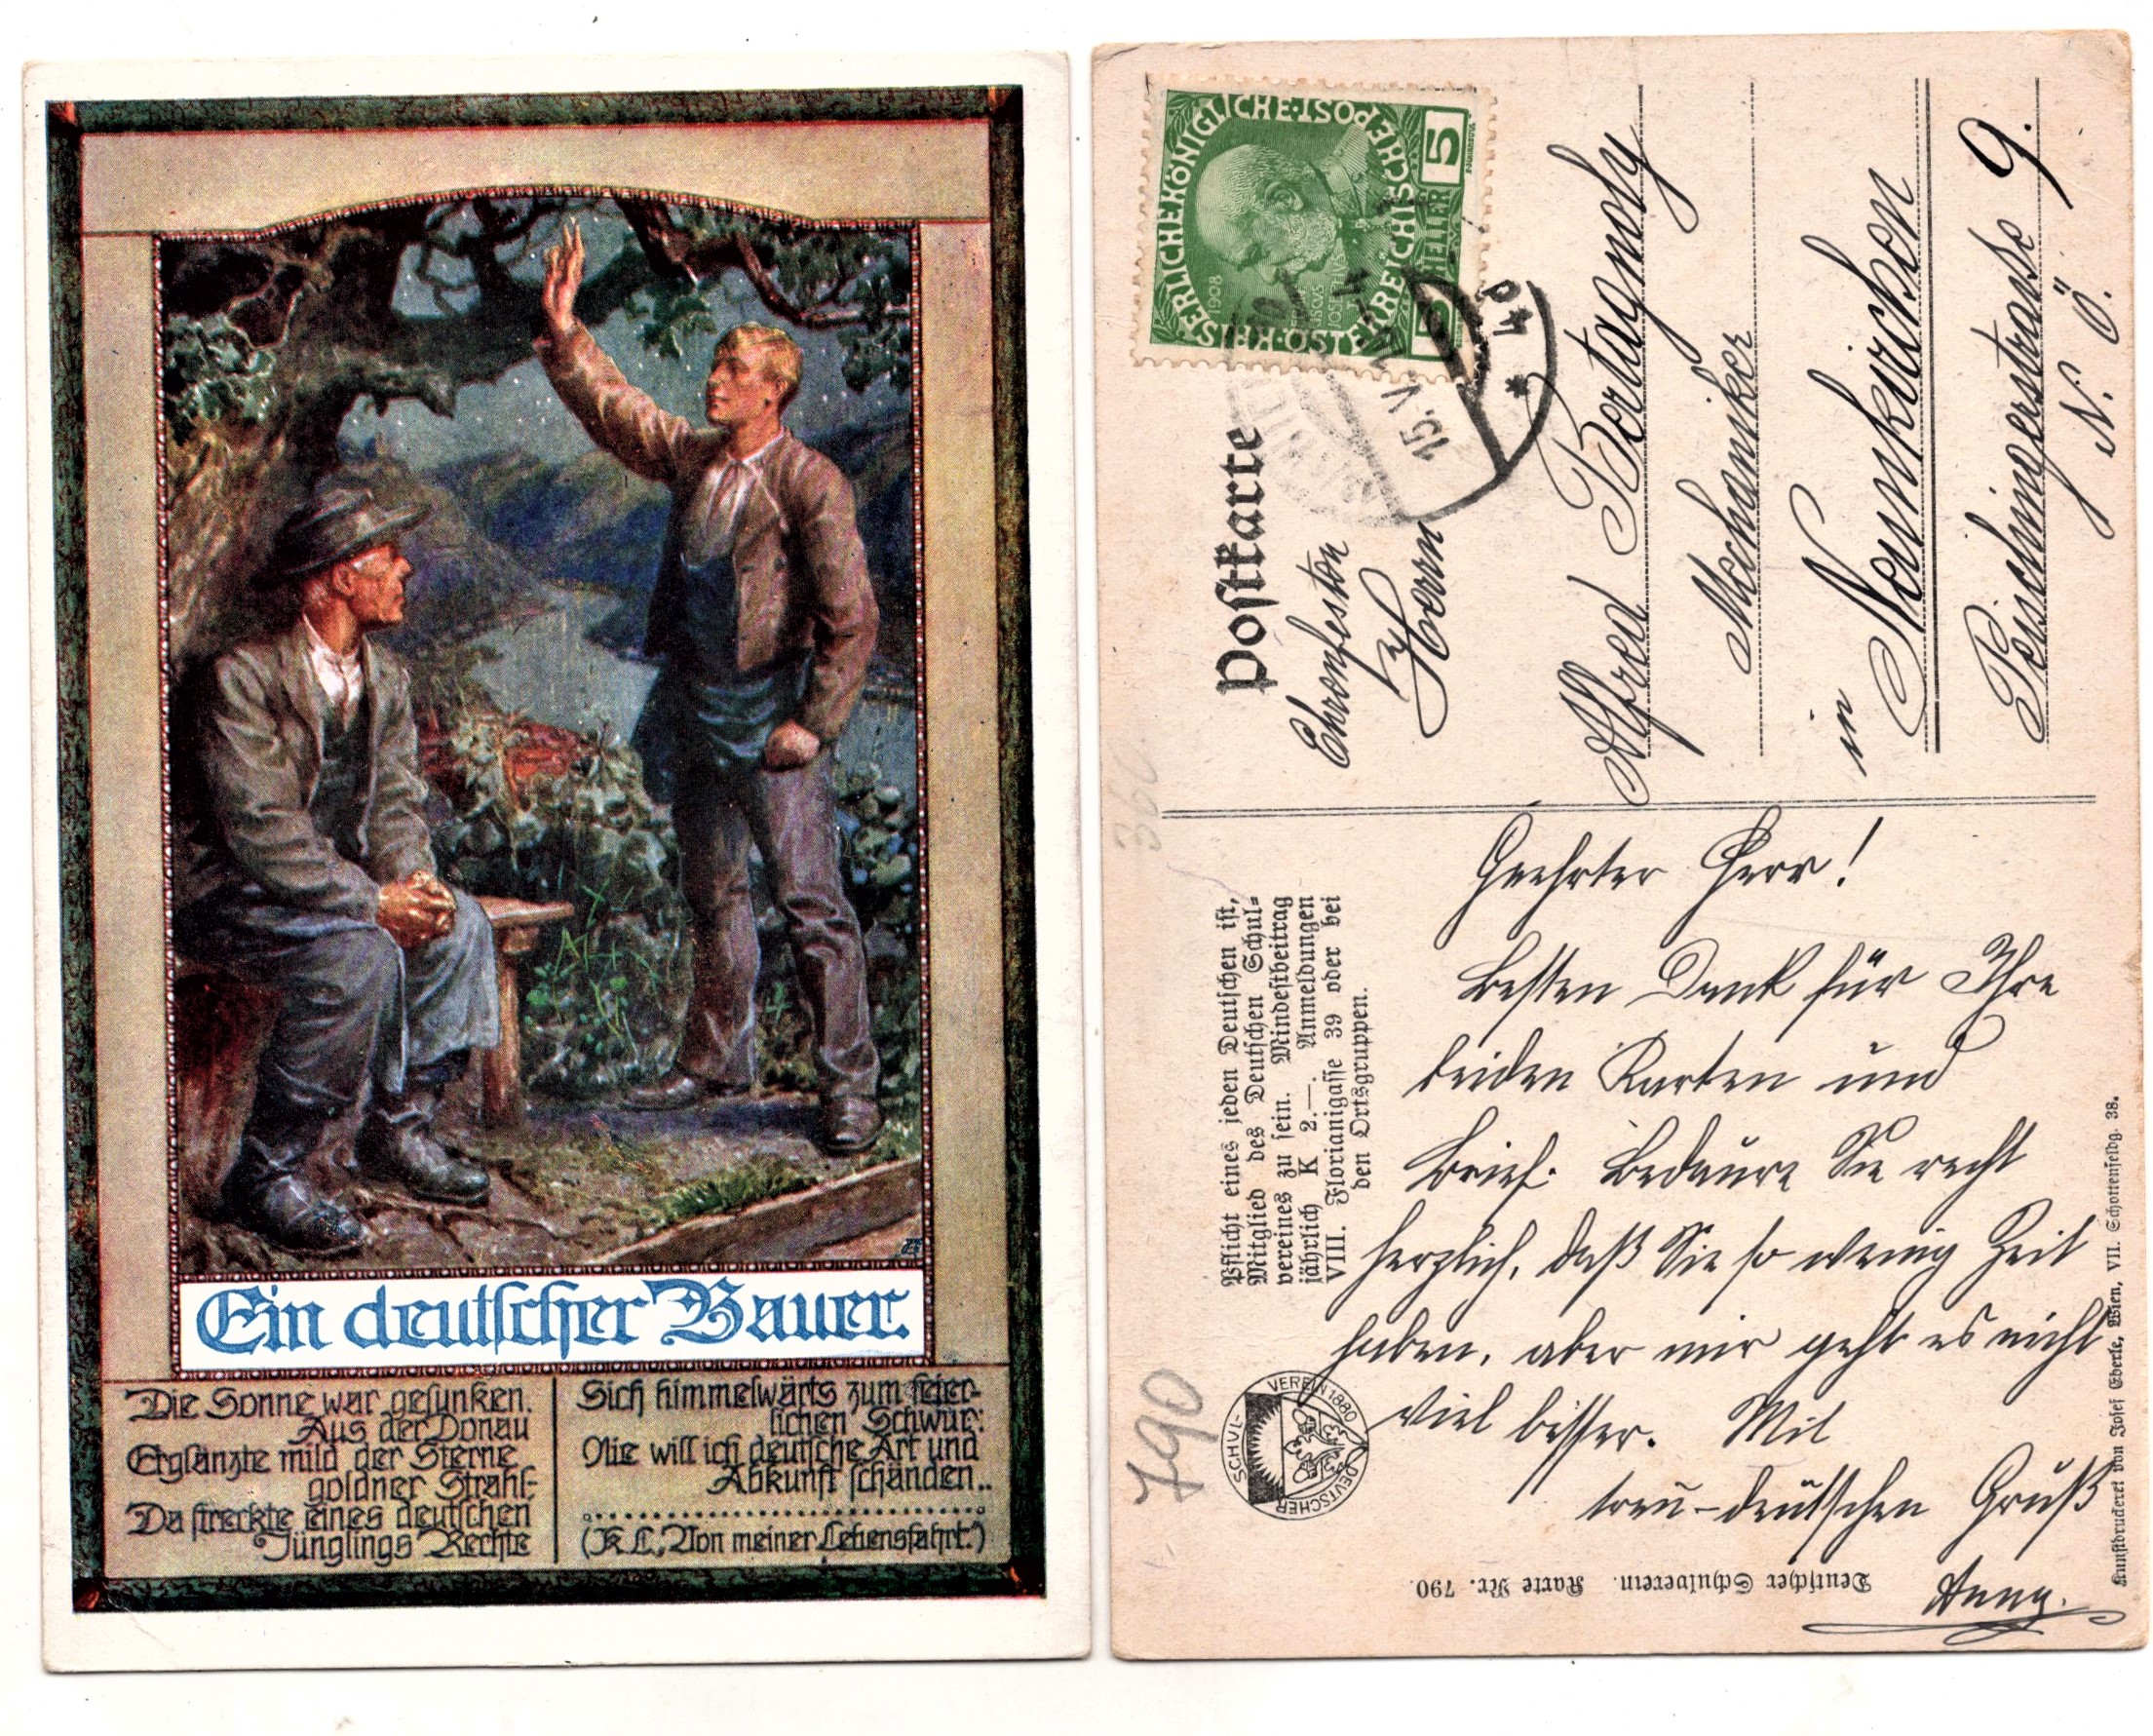 Ein deutscher Bauer.
Die Sonne war gesunken.
Aus der Donau
Erglänzte mild der Sterne
goldner Strahl-
Da streckte eines deutschen
Jünglings Rechte
Sich himmelwärts zum feier-
lichen Schwur:
Nie will ich deutsche Art und
Abkunft schänden..
(K. L. „Von meiner Lebensfahrt.")
Postkarte
KAISERLICHE KÖNIGLICHE POST
ÖSTERREICHISCHE
1908
5 HELLER 5
15. V.
* 4b
Ehrenfesten
Herrn
Alfred Bertagnoly
Mechaniker
in
Neunkirchen
Peischingerstrasse 9.
N. Ö.
Pflicht eines jeden Deutschen ist,
Mitglied des Deutschen Schul-
vereines zu sein. Mindestbeitrag
jährlich K 2.—. Anmeldungen
VIII. Florianigasse 39 oder bei
den Ortsgruppen.
Geehrter Herr!
Besten Dank für Ihre
beiden Karten und
Brief. Bedaure Sie recht
herzlich, daß Sie so wenig Zeit
haben, aber mir geht es nicht
viel besser. Mit
treu-deutschen Gruß
Anny.
DEUTSCHER SCHVL-VEREIN 1880
Deutscher Schulverein. Karte Nr. 790.
Kunstdruckerei von Josef Eberle, Wien, VII. Schottenfeldg. 38.
790
360